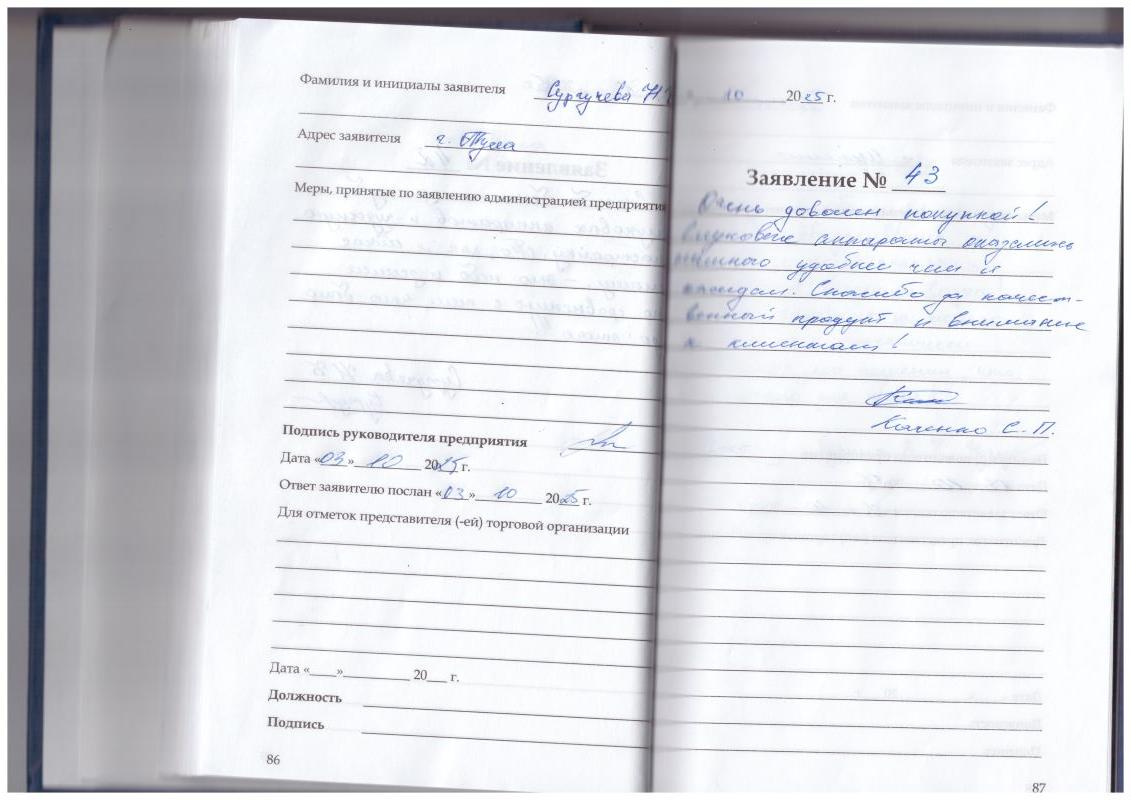 Фамилия и инициалы заявителя Сургучева Н.
Адрес заявителя г. Тула
Меры, принятые по заявлению администрацией предприятия
Подпись руководителя предприятия
Дата «03» 10 2025 г.
Ответ заявителю послан «03» 10 2025 г.
Для отметок представителя (-ей) торговой организации
Дата «___»__________ 20___ г.
Должность
Подпись
86
10 2025 г.
Заявление № 43
Очень доволен покупкой!
Слуховые аппараты оказались
намного удобнее чем я
ожидал. Спасибо за качест-
венный продукт и внимание
к клиентам!
С. П.
87